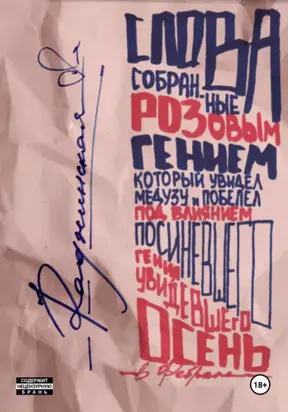 СЛОВА
СОБРАН-НЫЕ
РОЗОВЫМ
ГЕНИЕМ
КОТОРЫЙ УВИДЕЛ
МЕДУЗУ И ПОБЕЛЕЛ
ПОД ВЛИЯНИЕМ
ПОСИНЕВШЕГО
ГЕНИЯ
УВИДЕВШЕГО
ОСЕНЬ
в феврале
СОДЕРЖИТ
НЕЦЕНЗУРНУЮ
БРАНЬ
18+